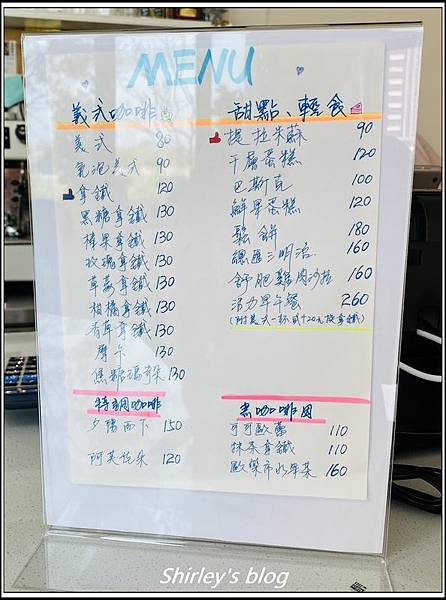 MENU
義式咖啡
美式 80
氣泡美式 90
拿鐵 120
黑糖拿鐵 130
榛果拿鐵 130
玫瑰拿鐵 130
草莓拿鐵 130
柑橘拿鐵 130
香草拿鐵 130
摩卡 130
焦糖瑪奇朵 130
特調咖啡
夕陽西下 150
阿芙佳朵 120
甜點、輕食
提拉米蘇 90
千層蛋糕 120
巴斯克 100
鮮果蛋糕 120
鬆餅 180
總匯三明治 160
舒肥雞肉沙拉 160
活力早午餐 260
(附美式一杯或+20元換拿鐵)
無咖啡因
可可歐蕾 110
抹茶拿鐵 110
歐樂市水果茶 160
Shirley's blog